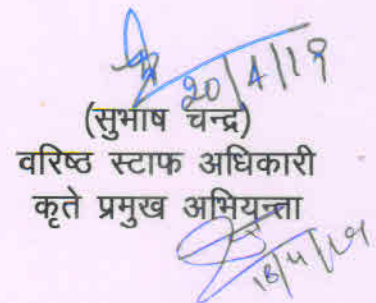 20/4/19
(सुभाष चन्द्र)
वरिष्ठ स्टाफ अधिकारी
कृते प्रमुख अभियन्ता
18/4/19